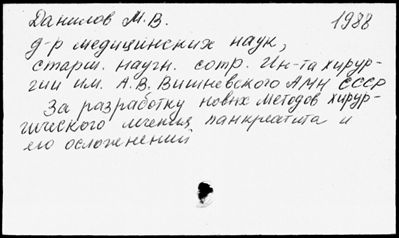 Данилов М.В. 1988
д-р медицинских наук,
старш. научн. сотр. Ин-та хирур-
гии им. А.В. Вишневского АМН СССР
За разработку новых методов хирур-
гического лечения панкреатита и
его осложнений